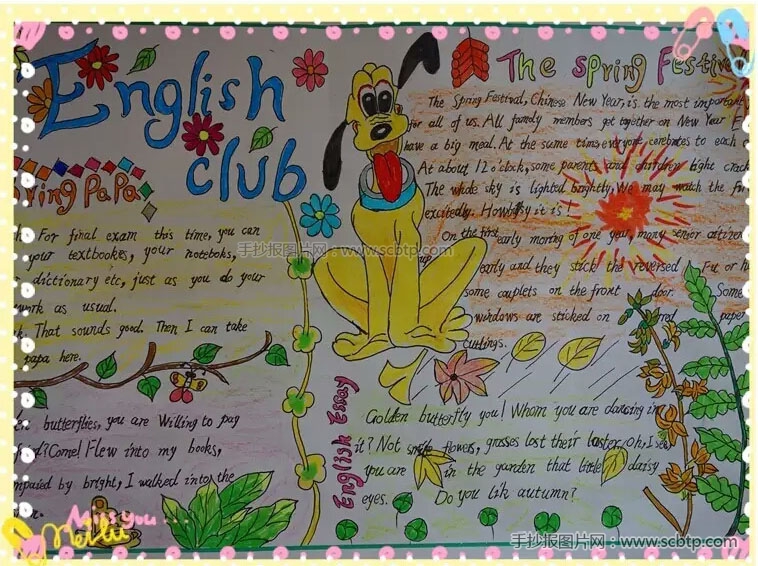 English
club
ring PaPa
For final exam this time, you can
your textbookes, your noteboks,
dictionary etc, just as you do your
work as usual.
k. That sounds good. Then I can take
papa here.
butterflies, you are Willing to pay
?Come! Flew into my books,
by bright, I walked into the
The Spring Festiv
The Spring Festival, Chinese New Year, is the most important
for all of us. All family members get together on New Year E
have a big meal. At the same time, everyone cerebrates to each o
At about 12 o'clock, some parents and children light crack
The whole sky is lighted brightly. We may watch the fir
excitedly. How it is!
On the first early moring of one year, many senior citizen
up early and they stick the reversed Fu or h
some couplets on the front door. Some
windows are sticked on red paper
cuttings.
English Essay
Golden butterfly you! Whom you are dancing in
it? Not smile flowers, grasses lost their laster, oh, I see
you are in the garden that little daisy
eyes. Do you lik autumn?
Miss you ...
Meilu
手抄报图片网：www.scbtp.com
手抄报图片网：www.scbtp.com